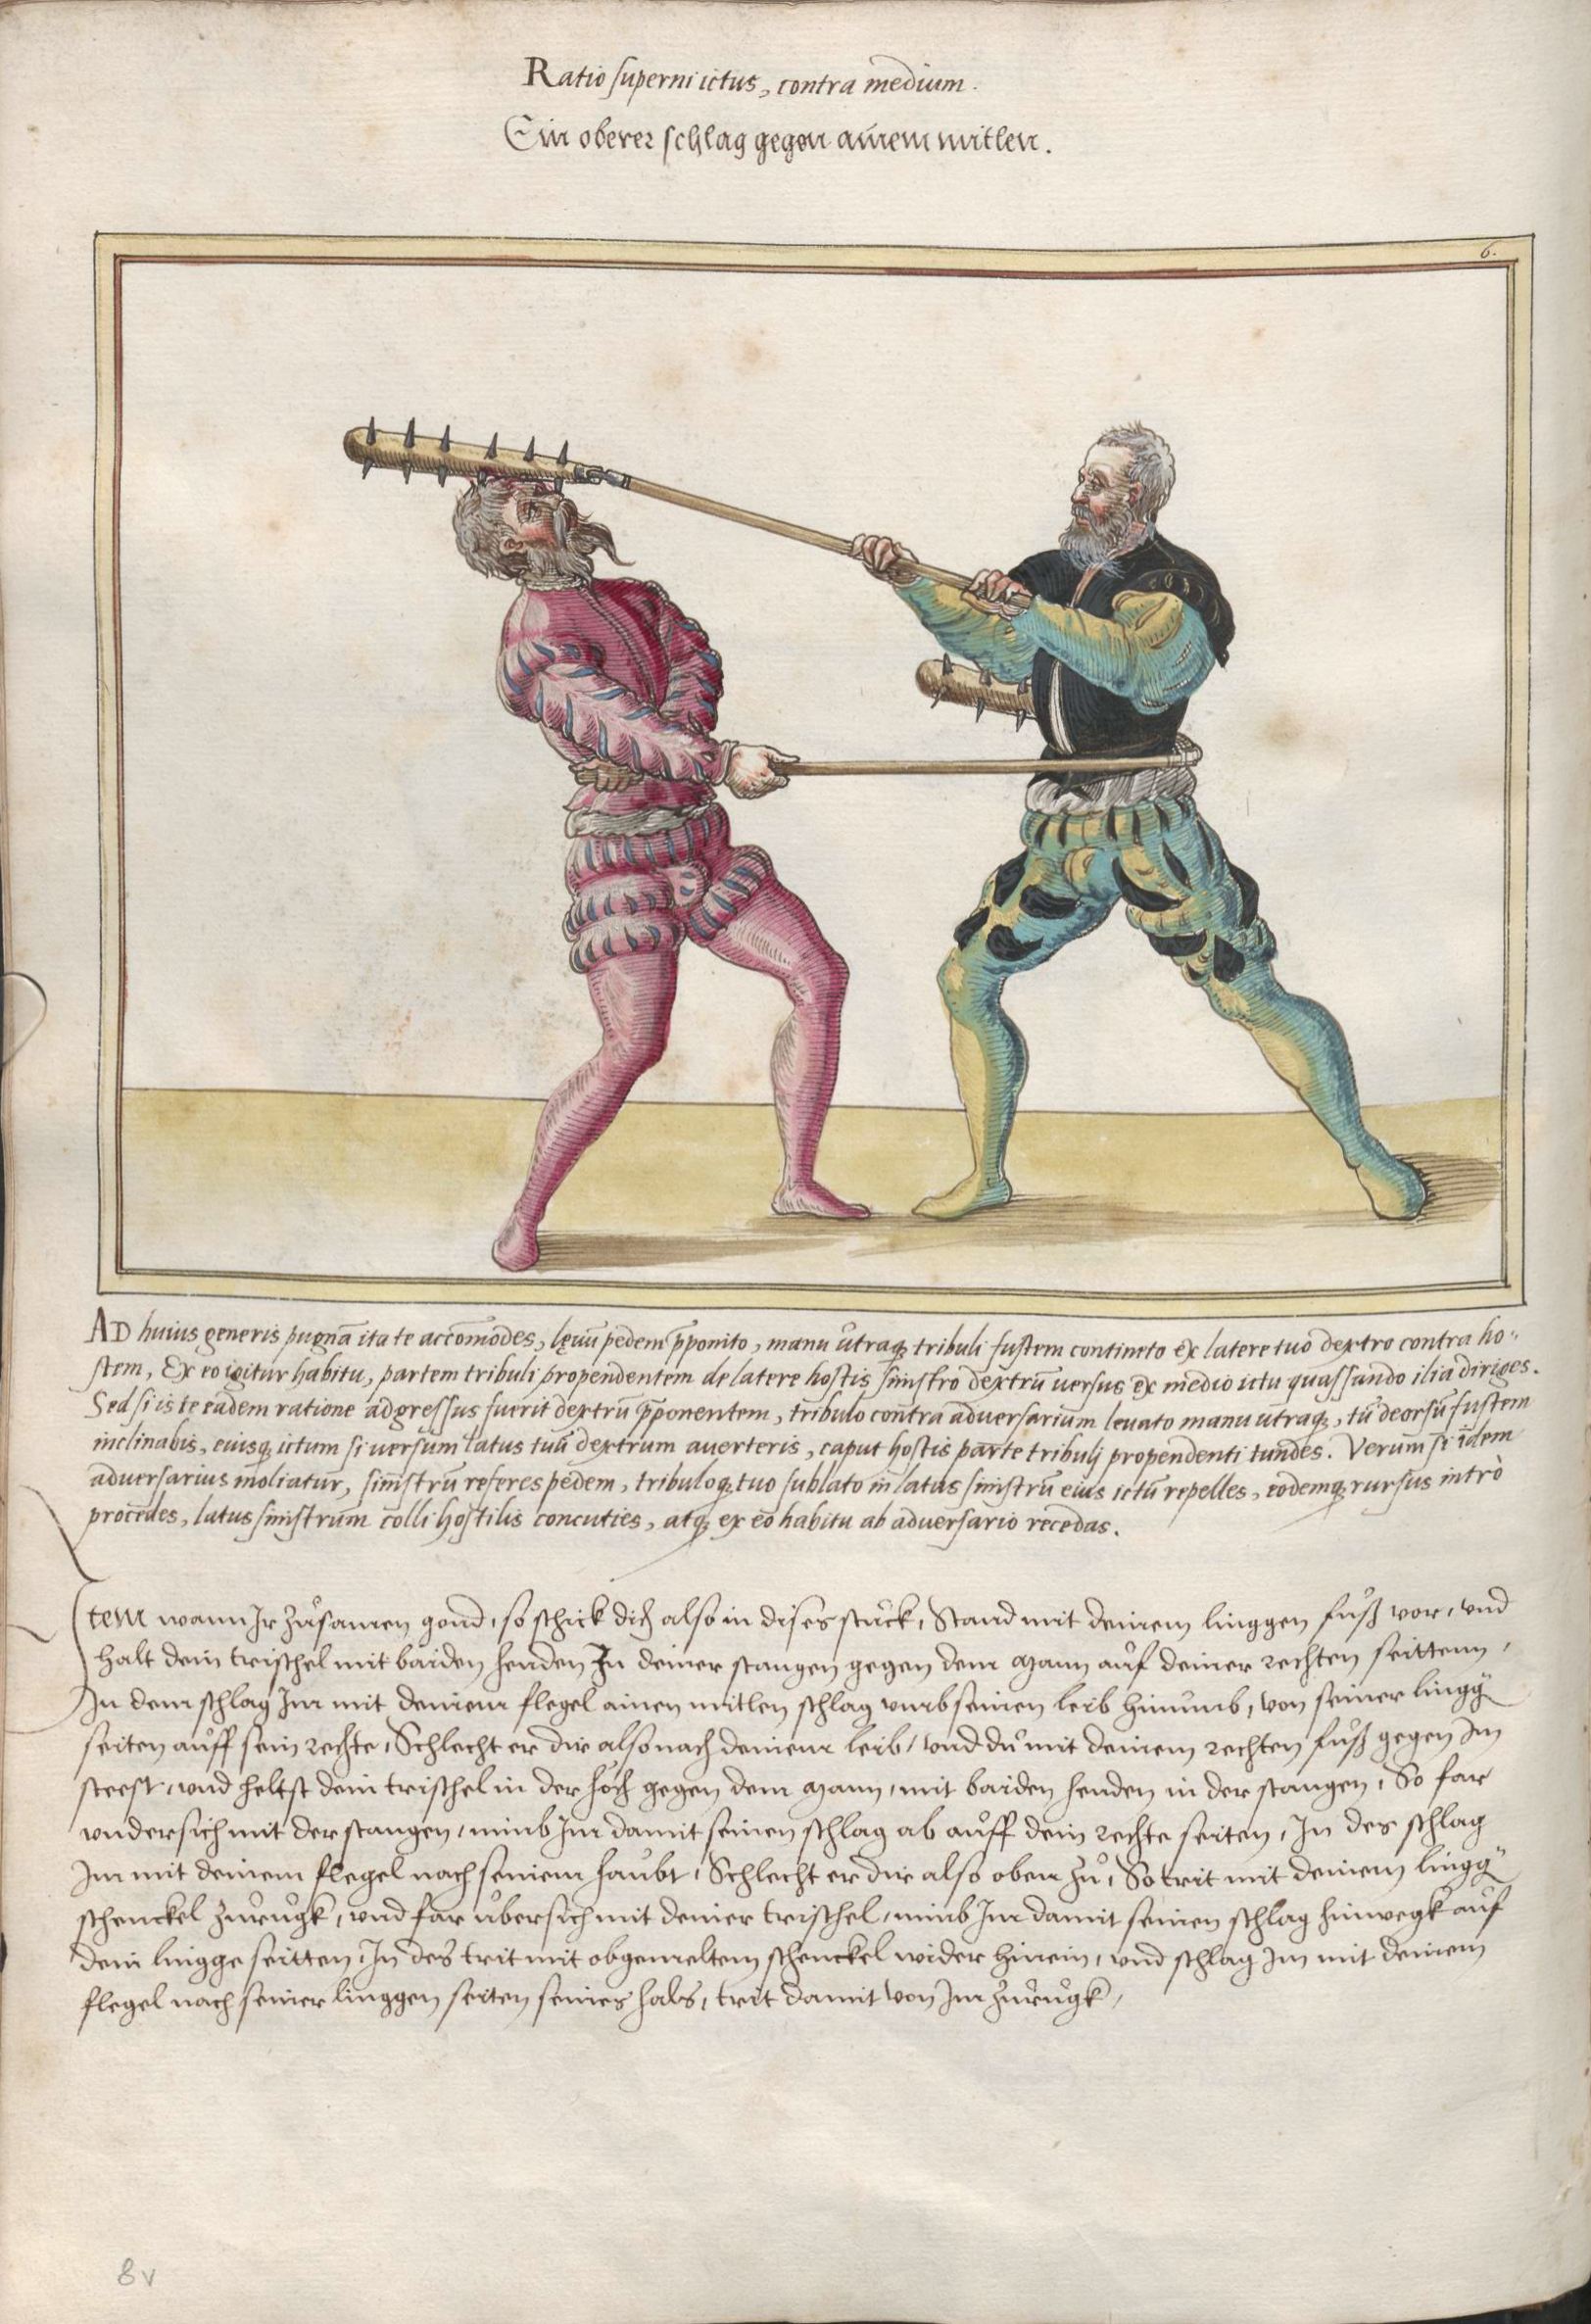 Ratio superni ictus, contra medium.
Ein oberer schlag gegen ainem mitlen.
6.
AD huius generis pugnā ita te accōmodes, lęuū pedem p̄ponito, manu utraq; tribuli fustem contineto ex latere tuo dextro contra ho-
stem, Ex eo igitur habitu, partem tribuli propendentem de latere hostis sinistro dextrū uersus ex medio ictu quassando ilia diriges.
Sed si is te eadem ratione adgressus fuerit dextrū p̄ponentem, tribulo contra aduersarium leuato manu utraq;, tū deorsū fustem
inclinabis, eiusq; ictum si uersum latus tuū dextrum auerteris, caput hostis parte tribulj propendenti tundes. Verum si idem
aduersarius moliatur, sinistrū referes pedem, tribuloq; tuo sublato in latus sinistrū eius ictū repelles, eodemq; rursus intrò
procedes, latus sinistrum colli hostilis concuties, atq; ex eo habitu ab aduersario recedas.
Item wann Ir zůsamen gond, so schick dich also in dises stuck, Stand mit deinem linggen fůß vor, vnd
halt dein trischel mit baiden henden In deiner stangen gegen dem Mann auf deiner rechten seittenn,
In dem schlag Im mit deinem flegel ainen mitlen schlag vmb seinen leib hinumb, von seiner lingg̃
seiten auff sein rechte, Schlecht er dir also nach deinem leib, vnd du mit deinem rechten fůß gegen Im
steest, vnd heltst dein trischel in der höch gegen dem Mann, mit baiden henden in der stangen, So far
vndersich mit der stangen, nimb Im damit seinen schlag ab auff dein rechte seiten, In des schlag
Im mit deinem flegel nach seinem haubt, Schlecht er dir also oben zů, So trit mit deinem lingg̃
schenckel zurugk, vnd far übersich mit deiner trischel, nimb Im damit seinen schlag hinwegk auf
dein lingge seitten, In des trit mit obgemeltem schenckel wider hinein, vnd schlag Im mit deinem
flegel nach seiner linggen seiten seines hals, trit damit von Im zurugk,
8v